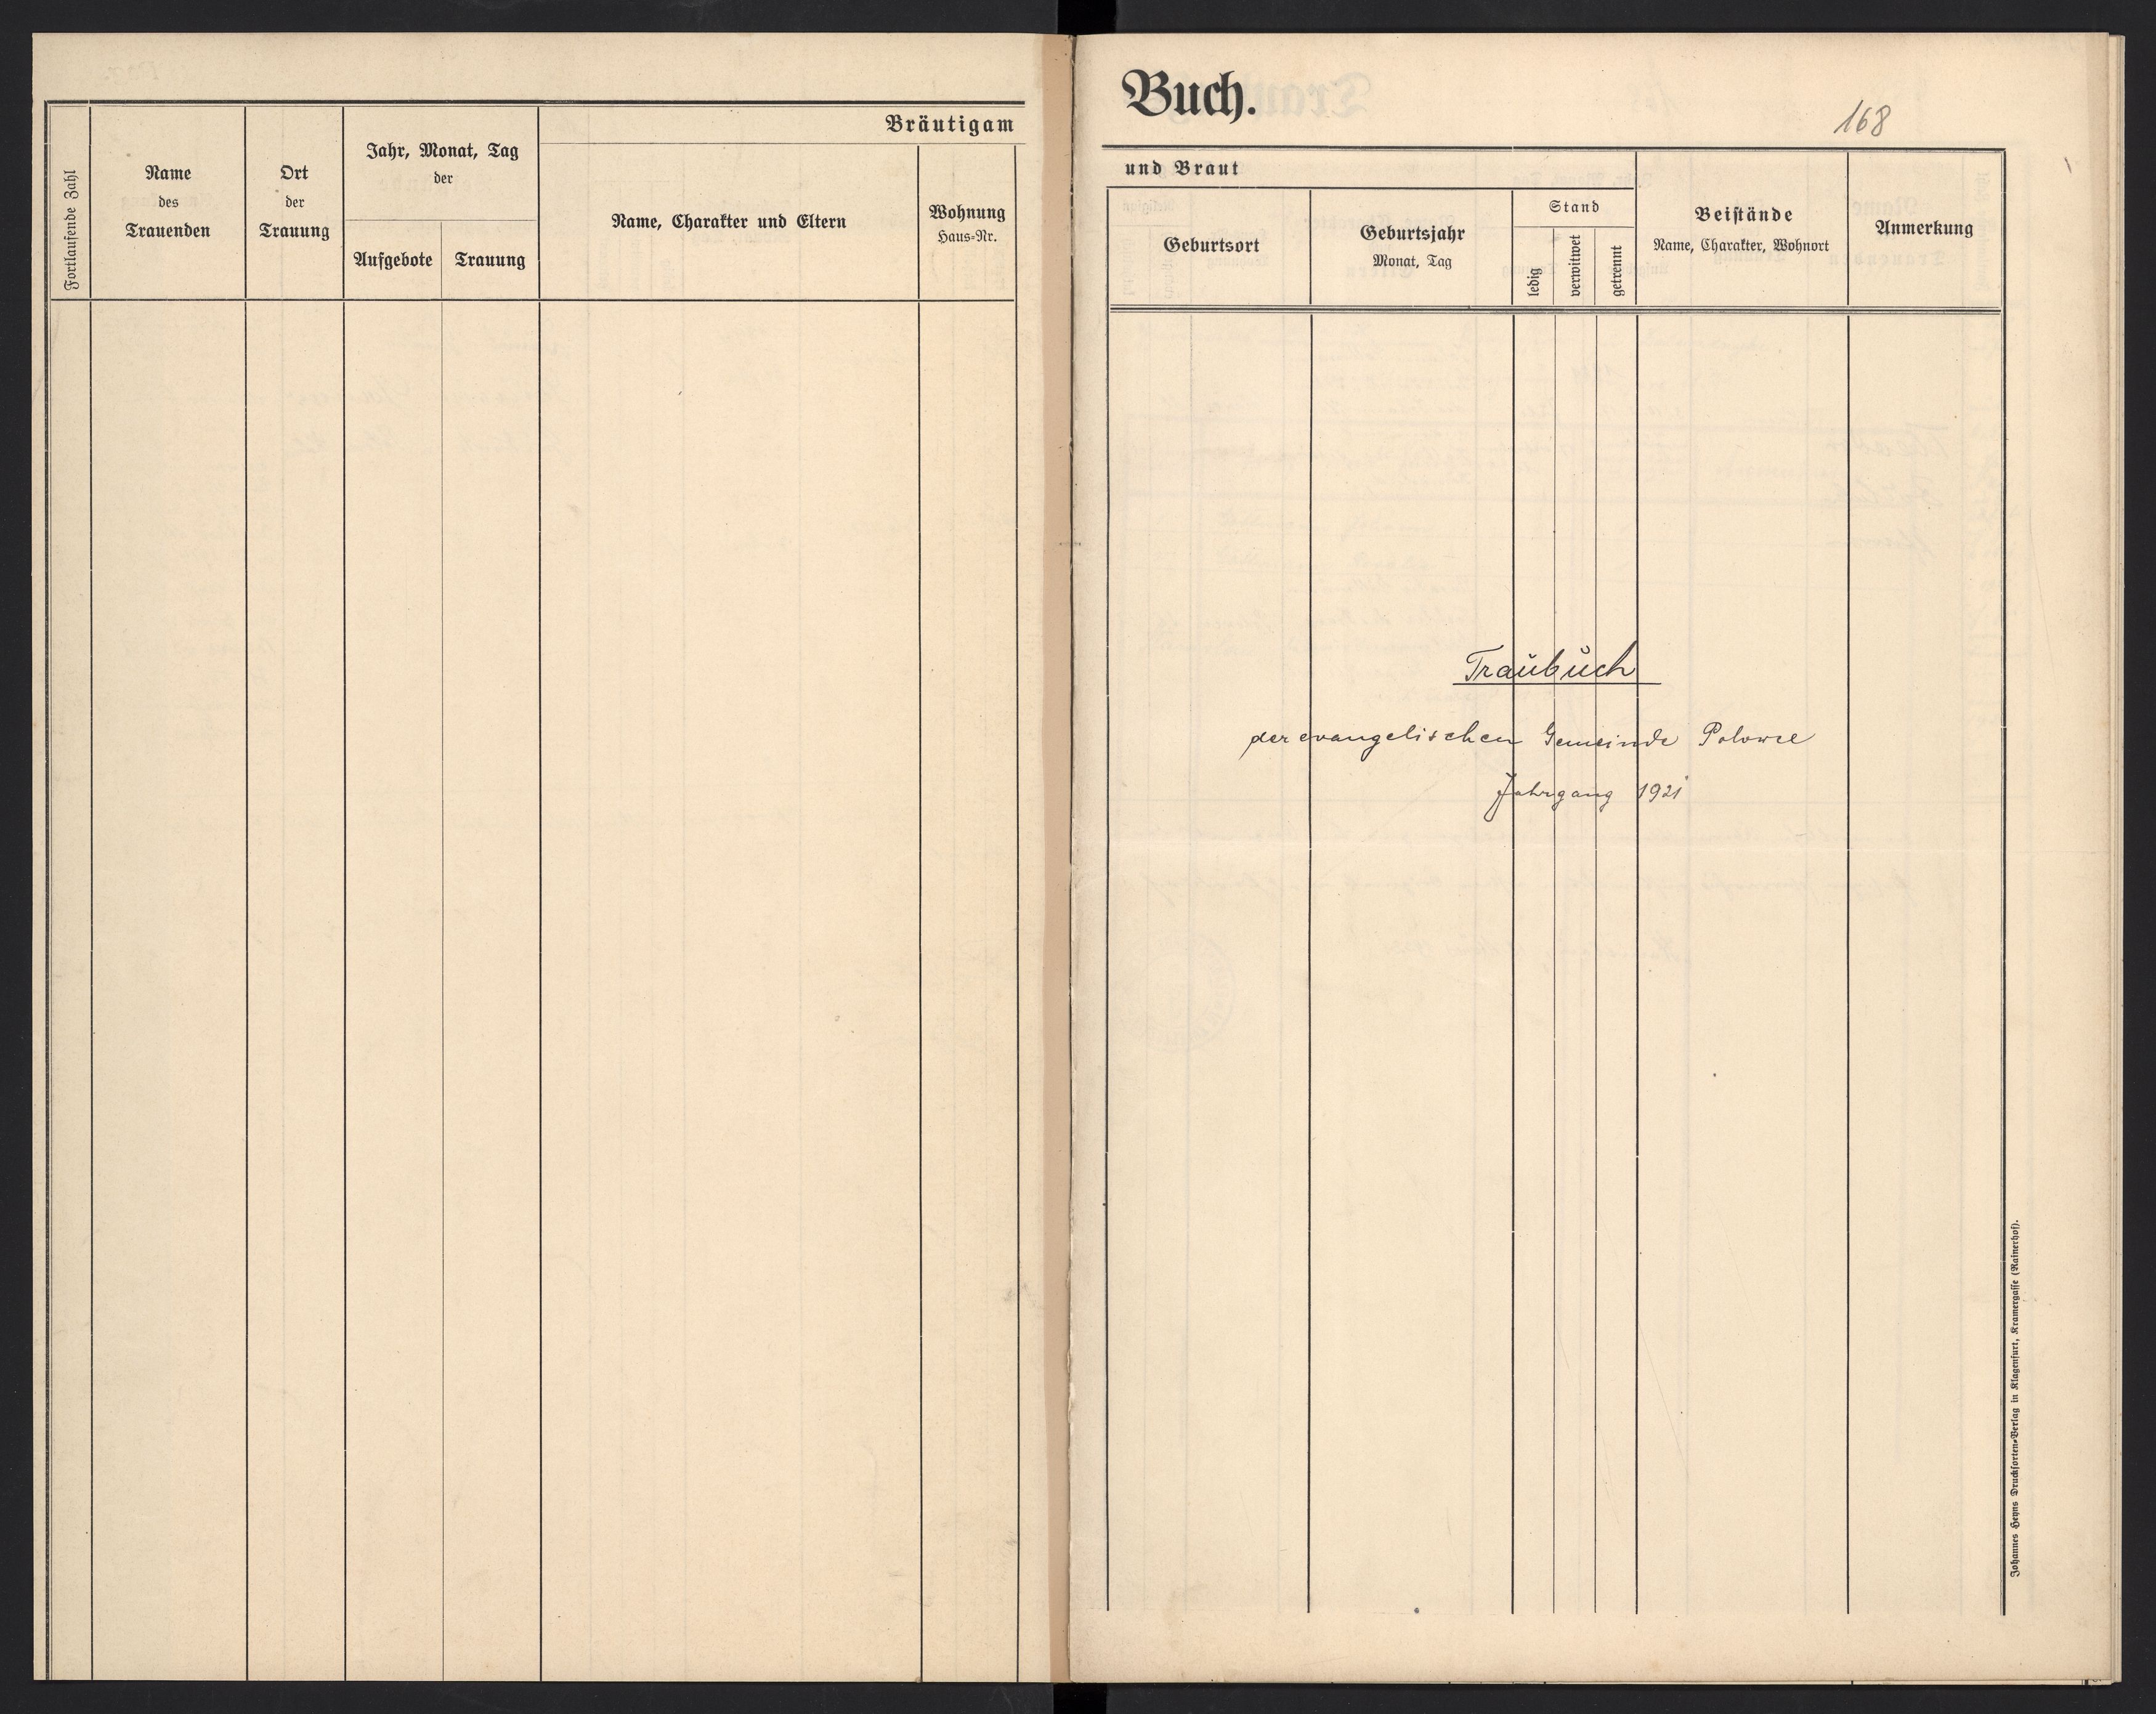 Bräutigam
Fortlaufende Zahl
Name
des
Trauenden
Ort
der
Trauung
Jahr, Monat, Tag
der
Aufgebote
Trauung
Name, Charakter und Eltern
Wohnung
Haus-Nr.
Buch.
168
und Braut
Geburtsort
Geburtsjahr
Monat, Tag
Stand
ledig
verwitwet
getrennt
Beistände
Name, Charakter, Wohnort
Anmerkung
Traubuch
der evangelischen Gemeinde Polowce
Jahrgang 1921
Johannes Heyns Drucksorten-Verlag in Klagenfurt, Kramergasse (Rainerhof).